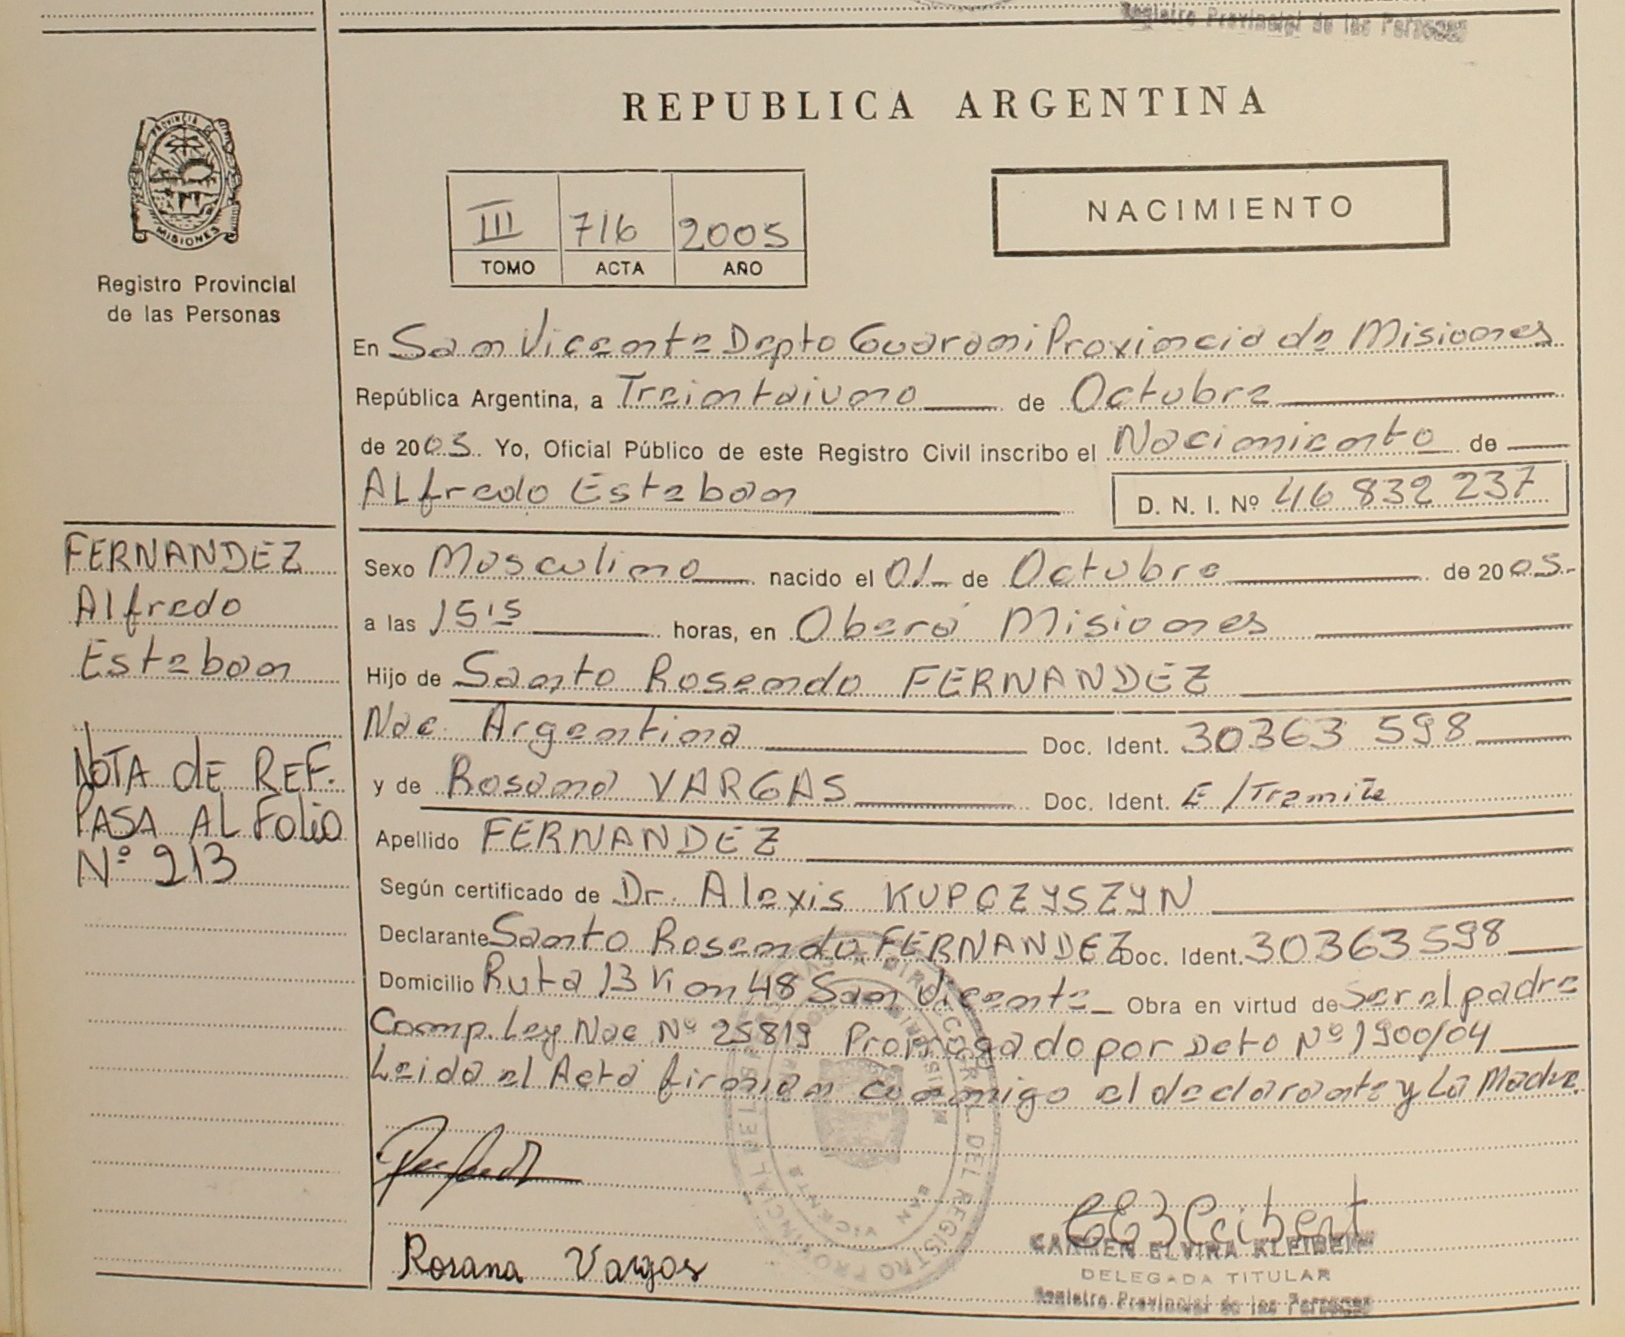 Registro Provincial de las Personas
REPUBLICA ARGENTINA
PROVINCIA DE
MISIONES
Registro Provincial
de las Personas
III 716 2005
TOMO ACTA AÑO
NACIMIENTO
En San Vicente Depto Guarani Provincia de Misiones
República Argentina, a Treintaiuno de Octubre
de 2005. Yo, Oficial Público de este Registro Civil inscribo el Nacimiento de
Alfredo Esteban D. N. I. Nº 46 832 237
FERNANDEZ
Alfredo
Esteban
NOTA de REF.
PASA AL Folio
Nº 213
Sexo Masculino nacido el 01 de Octubre de 2005.
a las 15 15 horas, en Oberá Misiones
Hijo de Santo Rosendo FERNANDEZ
Nac. Argentina Doc. Ident. 30363 598
y de Rosana VARGAS Doc. Ident. E/Tramite
Apellido FERNANDEZ
Según certificado de Dr. Alexis KUPCZYSZYN
Declarante Santo Rosendo FERNANDEZ Doc. Ident. 30363598
Domicilio Ruta 13 Km 48 San Vicente Obra en virtud de ser el padre
Comp. Ley Nac Nº 25819 Prorrogado por Dcto Nº 1900/04
Leida el Acta firman conmigo el declarante y La Madre.
Rosana Vargas
SAN VICENTE
CARMEN ELVIRA KLEIBERT
DELEGADA TITULAR
Registro Provincial de las Personas